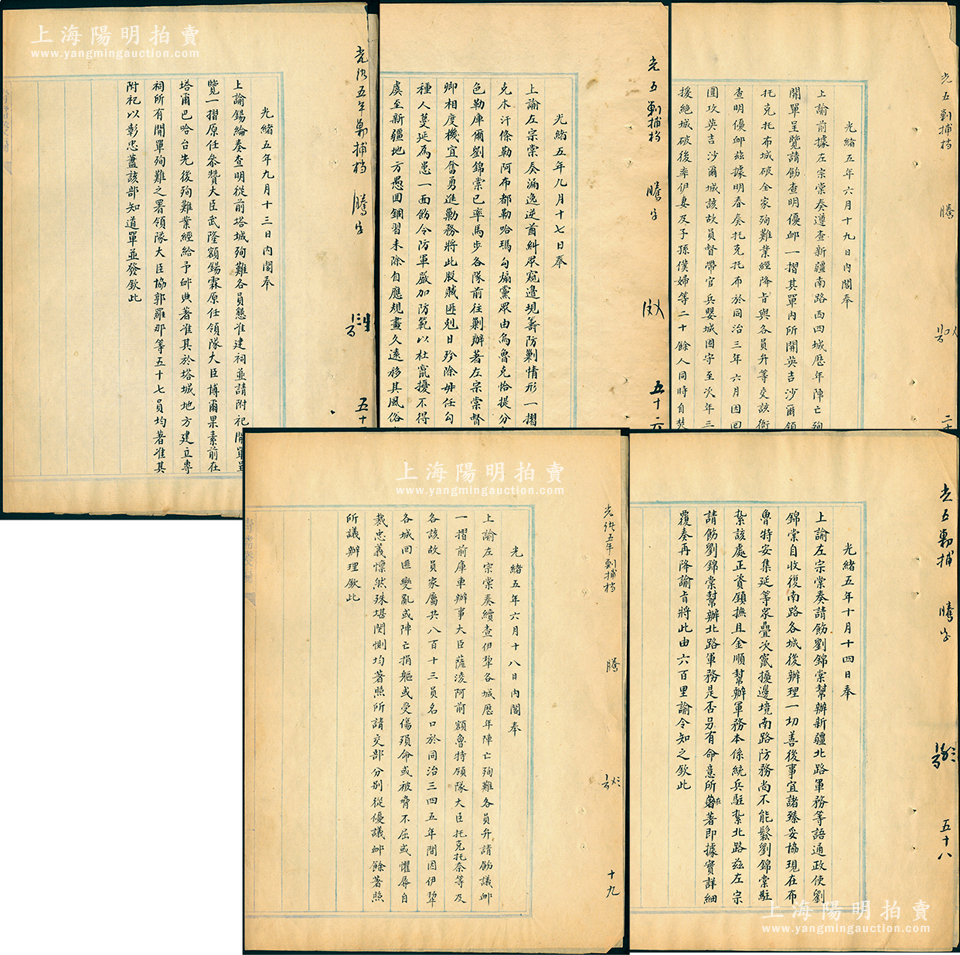 上海陽明拍賣
www.yangmingauction.com
光緒五年剿捕檔
騰
五十
光緒五年九月十三日內閣奉
上諭錫綸奏查明從前塔城殉難各員懇准建祠並請附祀開單呈
覽一摺原任參贊大臣武隆額錫霖原任領隊大臣博爾果素前在
塔爾巴哈台先後殉難業經給予卹典著准其於塔城地方建立專
祠所有開單殉難之署領隊大臣協郭羅那等五十七員均著准其
附祀以彰忠藎該部知道單並發欽此
上海陽明拍賣
www.yangmingauction.com
光五剿捕檔
騰
五十六
光緒五年九月十七日奉
上諭左宗棠奏漏逸逆酋糾眾窺邊現籌防剿情形一摺
克木汗條勒阿布都勒哈瑪勾煽黨眾由烏魯克恰提分
色勒庫爾劉錦棠已率馬步各隊前往剿辦著左宗棠督
卿相度機宜奮勇進勦務將此股賊匪剋日殄除毋任勾
種人蔓延為患一面飭令防軍嚴加防範以杜竄擾不得
虞至新疆地方愚回錮習未除自應規畫久遠移其風俗
光五剿捕檔
騰
二十
光緒五年六月十九日內閣奉
上諭前據左宗棠奏遵查新疆南路西四城歷年陣亡殉
開單呈覽請飭查明優卹一摺其單內所開英吉沙爾領
托克托布城破全家殉難業經降旨與各員弁等交該衙
查明優卹茲據明春奏托克托布於同治三年六月因回
圍攻英吉沙爾城該故員督帶官兵嬰城固守至次年三
援絕城破後率伊妻及子孫僕婦等二十餘人同時自焚
上海陽明拍賣
www.yangmingauction.com
光緒五年剿捕檔
騰
十九
光緒五年六月十八日內閣奉
上諭左宗棠奏續查伊犂各城歷年陣亡殉難各員弁請飭議卹
一摺前庫車辦事大臣薩淩阿前額魯特領隊大臣托克托奈等及
各該故員家屬共八百十三員名口於同治三四五年間因伊犂
各城回匪變亂或陣亡捐軀或受傷殞命或被脅不屈或懼辱自
裁忠義懍然殊堪閔惻均著照所請交部分別從優議卹餘著照
所議辦理欽此
光五剿捕
騰
五十八
光緒五年十月十四日奉
上諭左宗棠奏請飭劉錦棠幫辦新疆北路軍務等語通政使劉
錦棠自收復南路各城後辦理一切善後事宜諸臻妥協現在布
魯特安集延等眾疊次竄擾邊境南路防務尚不能鬆劉錦棠駐
紮該處正資鎮撫且金順幫辦軍務本係統兵駐紮北路茲左宗
請飭劉錦棠幫辦北路軍務是否另有命意所在著即據實詳細
覆奏再降諭旨將此由六百里諭令知之欽此
上海陽明拍賣
www.yangmingauction.com